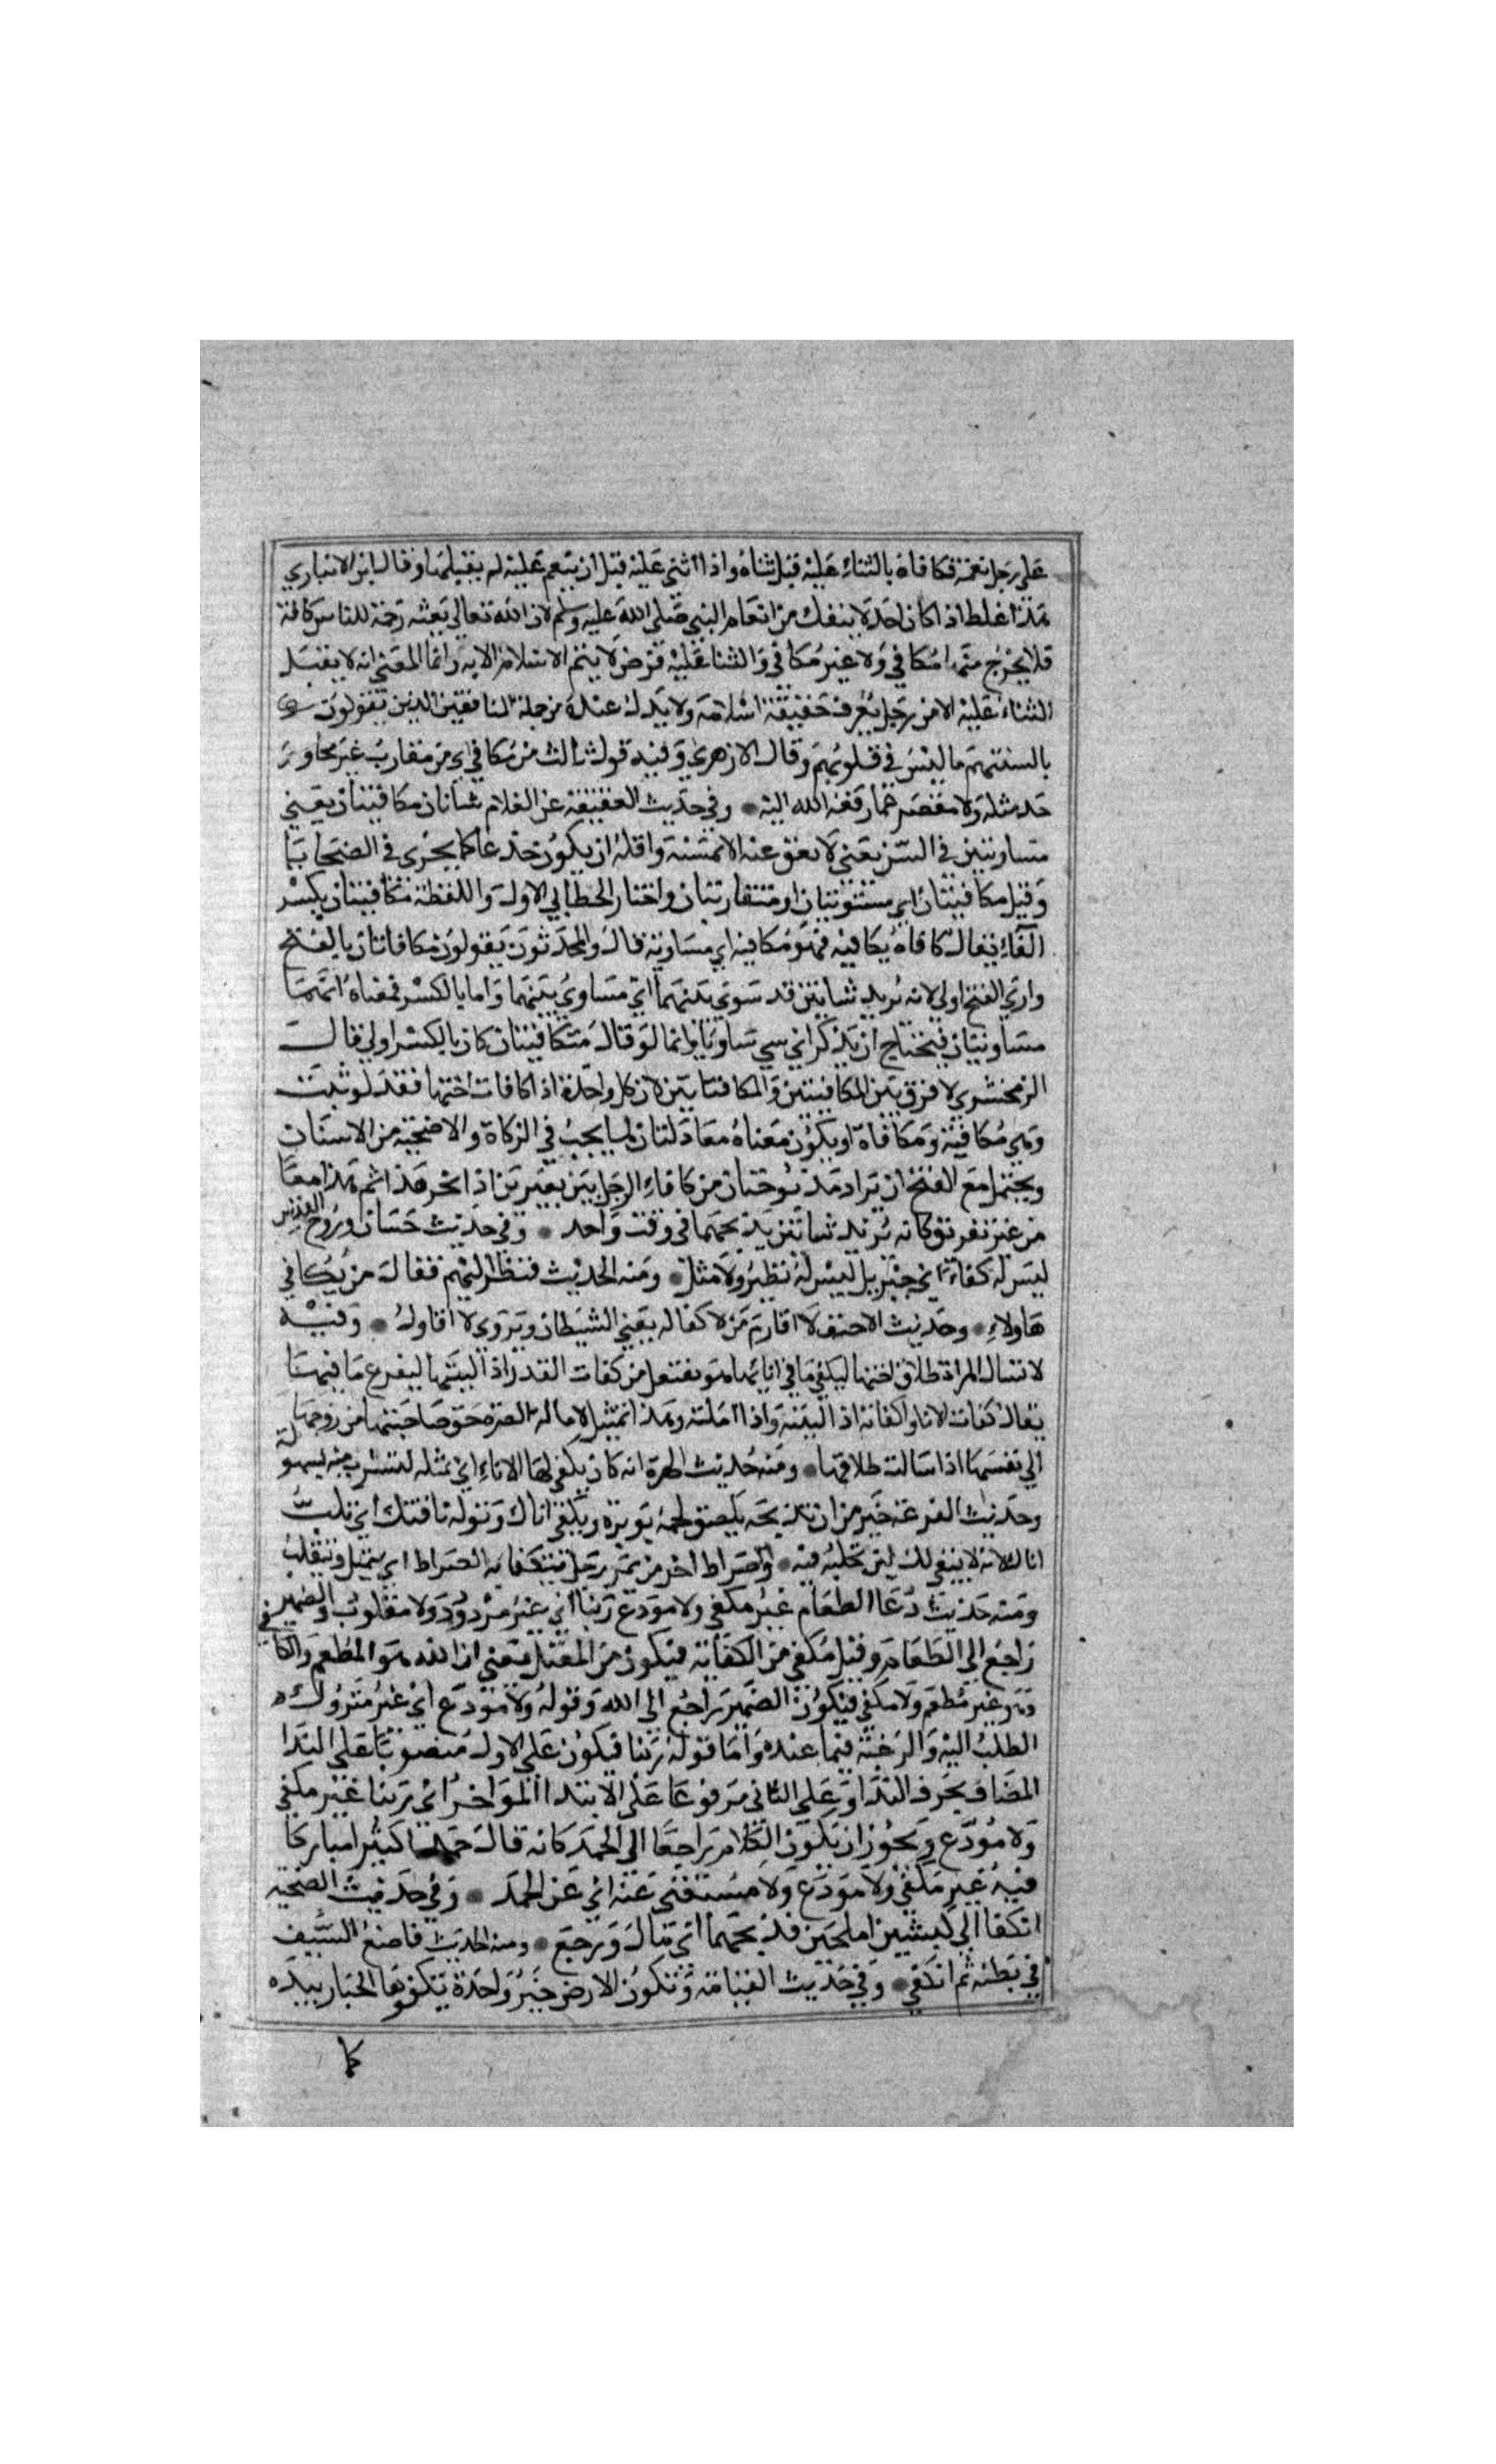 على رجل نعمة فكافاه بالثناء عليه قبل ثناه واذا اثنى عليه قبل ان ينعم عليه لم يقبلها وقال ابن الانباري
هذا غلط اذا كان احد لا ينفك من انعام النبي صلى الله عليه وسلم لان الله تعالى بعثه رحمة للناس كافة
فلا يخرج منها مكافي ولا غير مكافي والثنا عليه فرض لا يتم الاسلام الا به وانما المعنى انه لا يقبل
الثناء عليه الا من رجل يعرف حقيقة اسلامه ولا يدخل عنده من جملة المنافقين الذين يقولون
بالسنتهم ما ليس في قلوبهم وقال الازهري وفيه قول ثالث من مكافي اي من مقارب غير مجاوز
حد مثله ولا مقصر عما رفعه الله اليه وفي حديث العقيقة عن الغلام شاتان مكافيتان يعني
متساويتين في السن يعني لا يعق عنه الا بمسنة واقله ان يكون جذعا كما يجزى في الضحايا
وقيل مكافيتان اي مستويتان او متقاربتان واختار الخطابي الاول واللفظة مكافيتان بكسر
الفاء يقال كافاه يكافيه فهو مكافيه اي مساويه قال والمحدثون يقولون مكافاتان بالفتح
وارى الفتح اولى لانه يريد شاتين قد سوى بينهما اي مساوى بينهما واما بالكسر فمعناه انهما
مساويتان فيحتاج ان يذكر اي شي ساويا وانما لو قال متكافيتان كان بالكسر اولى قال
الزمخشري لا فرق بين المكافيتين والمكافاتين لان كل واحدة اذا كافات اختها فقد كوفيت
وهي مكافية ومكافاة او يكون معناه معادلتان لما يجب في الزكاة والاضحية من الاسنان
ويحتمل مع الفتح ان تراد مذبوحتان من كافاء الرجل بين بعيرين اذا نحر هذا ثم هذا معا
من غير تفريق كانه يريد شاتين يذبحهما في وقت واحد وفي حديث حسان وروح القدس
ليس له كفاء اي جبريل ليس له نظير ولا مثل ومنه الحديث فنظر اليهم فقال من يكافي
هاولاء وحديث الاحنف لا اقاوم من لا كفا له يعني الشيطان ويروى لا اقاول وفيه
لا تسال المراة طلاق اختها لتكفي ما في انايها هو تفتعل من كفات القدر اذا كببتها ليفرغ ما فيها
يقال كفات الانا واكفاته اذا كببته واذا املته وهذا تمثيل لامالة الضرة حق صاحبتها من زوجها
الى نفسها اذا سالت طلاقها ومنه حديث الهرة انه كان يكفي لها الاناء اي يميله لتشرب منه بسهولة
وحديث الفرعة خير من ان تذبحه يلصق لحمه بوبره وتكفي اناك وتوله ناقتك اي تكب
اناك لانه لا يبقى لك لبن تحلبه فيه والصراط اخر من يمر رجل يتكفا به الصراط اي يتميل ويتقلب
ومنه حديث دعا الطعام غير مكفي ولا مودع ربنا اي غير مردود ولا مقلوب والضمير
راجع الى الطعام وقيل مكفي من الكفاية فيكون من المعتل يعني ان الله هو المطعم والكافي
وهو غير مطعم ولا مكفي فيكون الضمير راجع الى الله وقوله ولا مودع اي غير متروك
الطلب اليه والرغبة فيما عنده واما قوله ربنا فيكون على الاول منصوبا على الندا
المضاف بحرف الندا وعلى الثاني مرفوعا على الابتدا المؤخر اي ربنا غير مكفي
ولا مودع ويجوز ان يكون الكلام راجعا الى الحمد كانه قال حمدا كثيرا مباركا
فيه غير مكفي ولا مودع ولا مستغنى عنه اي عن الحمد وفي حديث الضحية
انكفا الى كبشين املحين فذبحهما اي مال ورجع ومنه الحديث فاضع السيف
في بطنه ثم انكفي وفي حديث القيامة وتكون الارض خبزة واحدة يتكفؤها الجبار بيده
كا